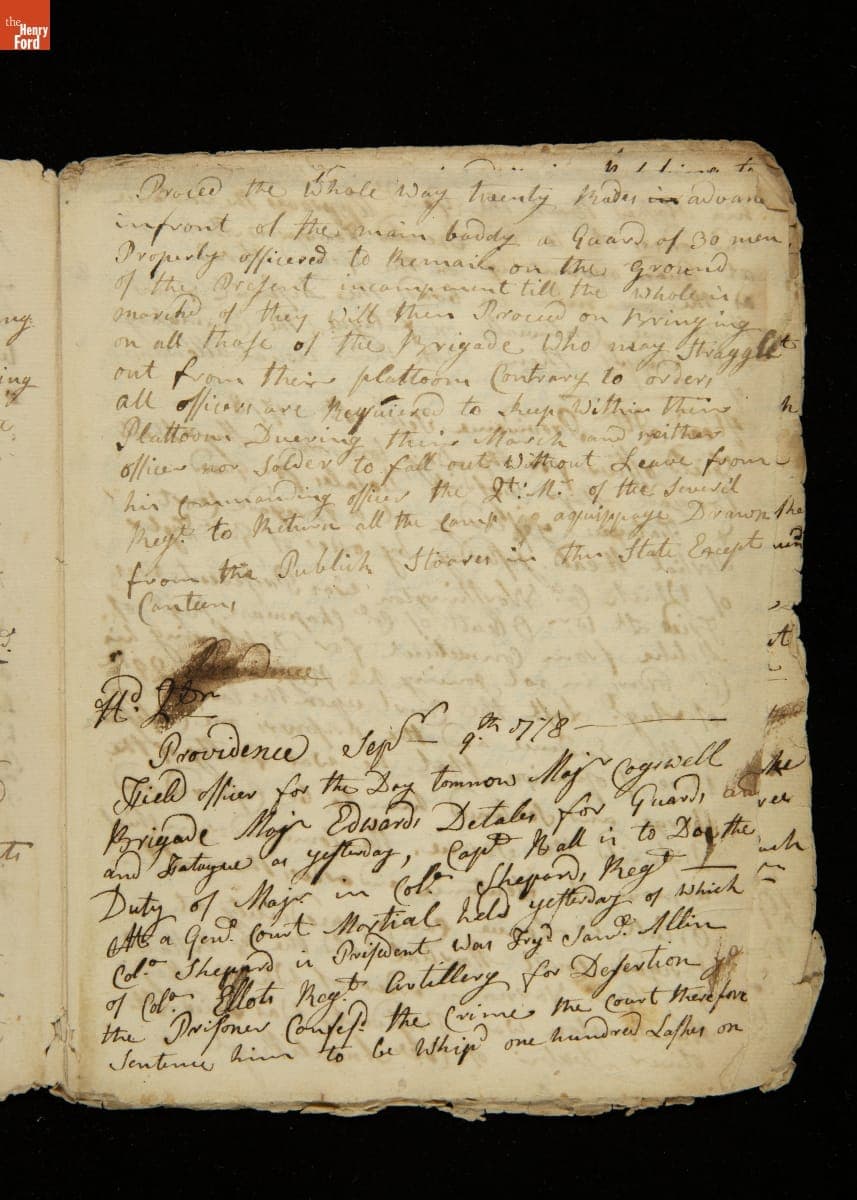 the
Henry
Ford
Proceed the Whole Way twenty Rodes in advance
infront of the main boddy a Guard of 30 men
Properly officered to Remain on the Ground
of the Present incampment till the whole is
march'd of they will then Proceed on Bringing
on all those of the Brigade Who may Straggle
out from their plattoon Contrary to orders
all officers are Requiered to keep Within their
Plattoon Duering their March and neither
officer nor Solder to fall out Without Leave from
his Commanding officer the Qt: Mr of the Severil
Regt to Return all the Camp aquippage Drawn
from the Publick Stoares in this State Except
Canteens
Hd Qtr
Providence Sepr 9th 1778
Field officer for the Day tomnow Majr Cogswell
Brigade Majr Edwards Detales for Guards and
and Fatague as yesterday, Capt Hall is to Do the
Duty of Majr in Colo Shepards Regt
At a Genl Court Mortial held yesterday of which
Colo Shepard is Prisedent was Tryd Saml Allin
of Colo Ellots Regt Artillery for Desertion
the Prisoner Confesd the Crime the Court therefore
Sentence him to be Whipd one hundred Lashes on